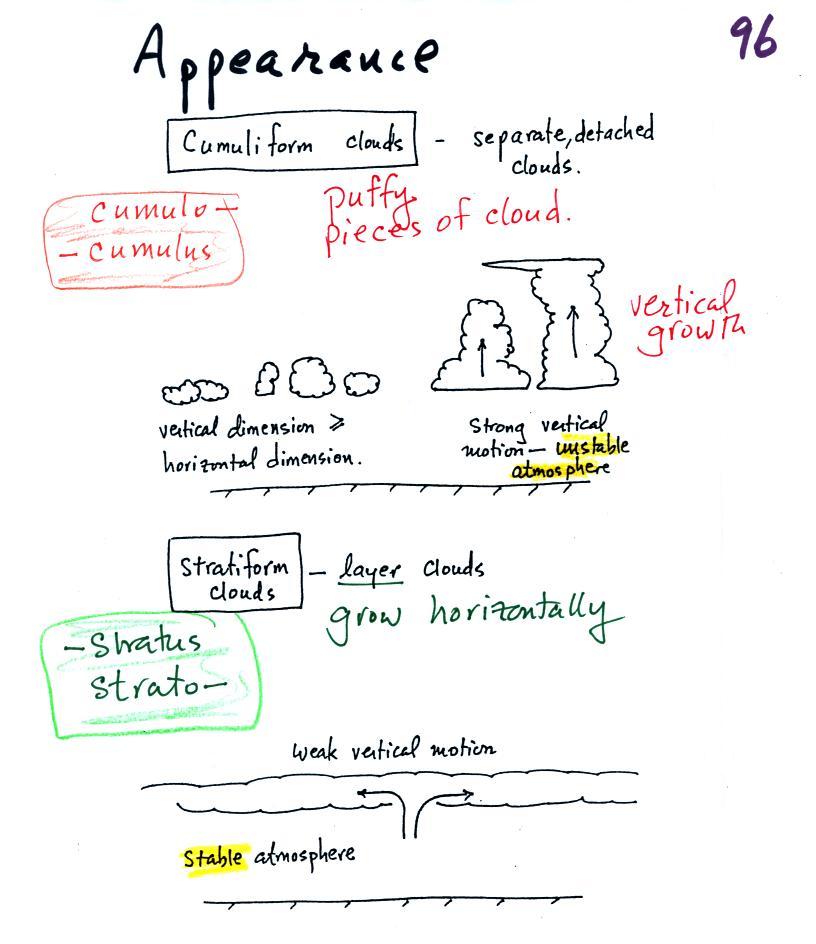 96
Appearance
Cumuliform clouds - separate, detached
clouds.
puffy
pieces of cloud.
cumulo-
- cumulus
vertical
growth
vertical dimension ≥
horizontal dimension.
Strong vertical
motion - unstable
atmosphere
Stratiform
clouds
- layer clouds
grow horizontally
- Stratus
Strato-
weak vertical motion
Stable atmosphere